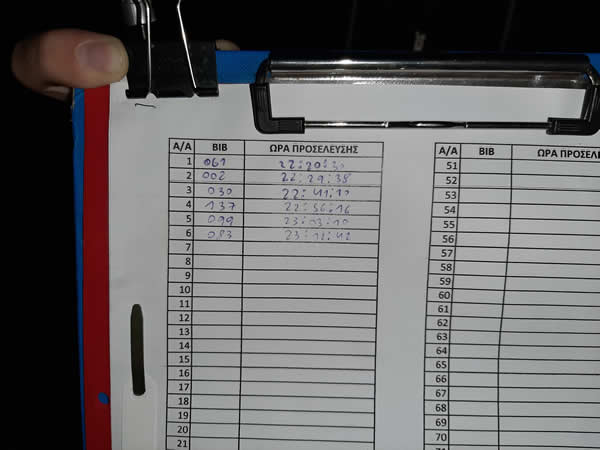 Α/Α BIB ΩΡΑ ΠΡΟΣΕΛΕΥΣΗΣ
1 061 22:20:30
2 002 22:29:38
3 030 22:41:10
4 137 22:56:16
5 099 23:03:10
6 083 23:12:42
7
8
9
10
11
12
13
14
15
16
17
18
19
20
21
Α/Α BIB ΩΡΑ ΠΡΟΣΕΛ
51
52
53
54
55
56
57
58
59
60
61
62
63
64
65
66
67
68
69
70